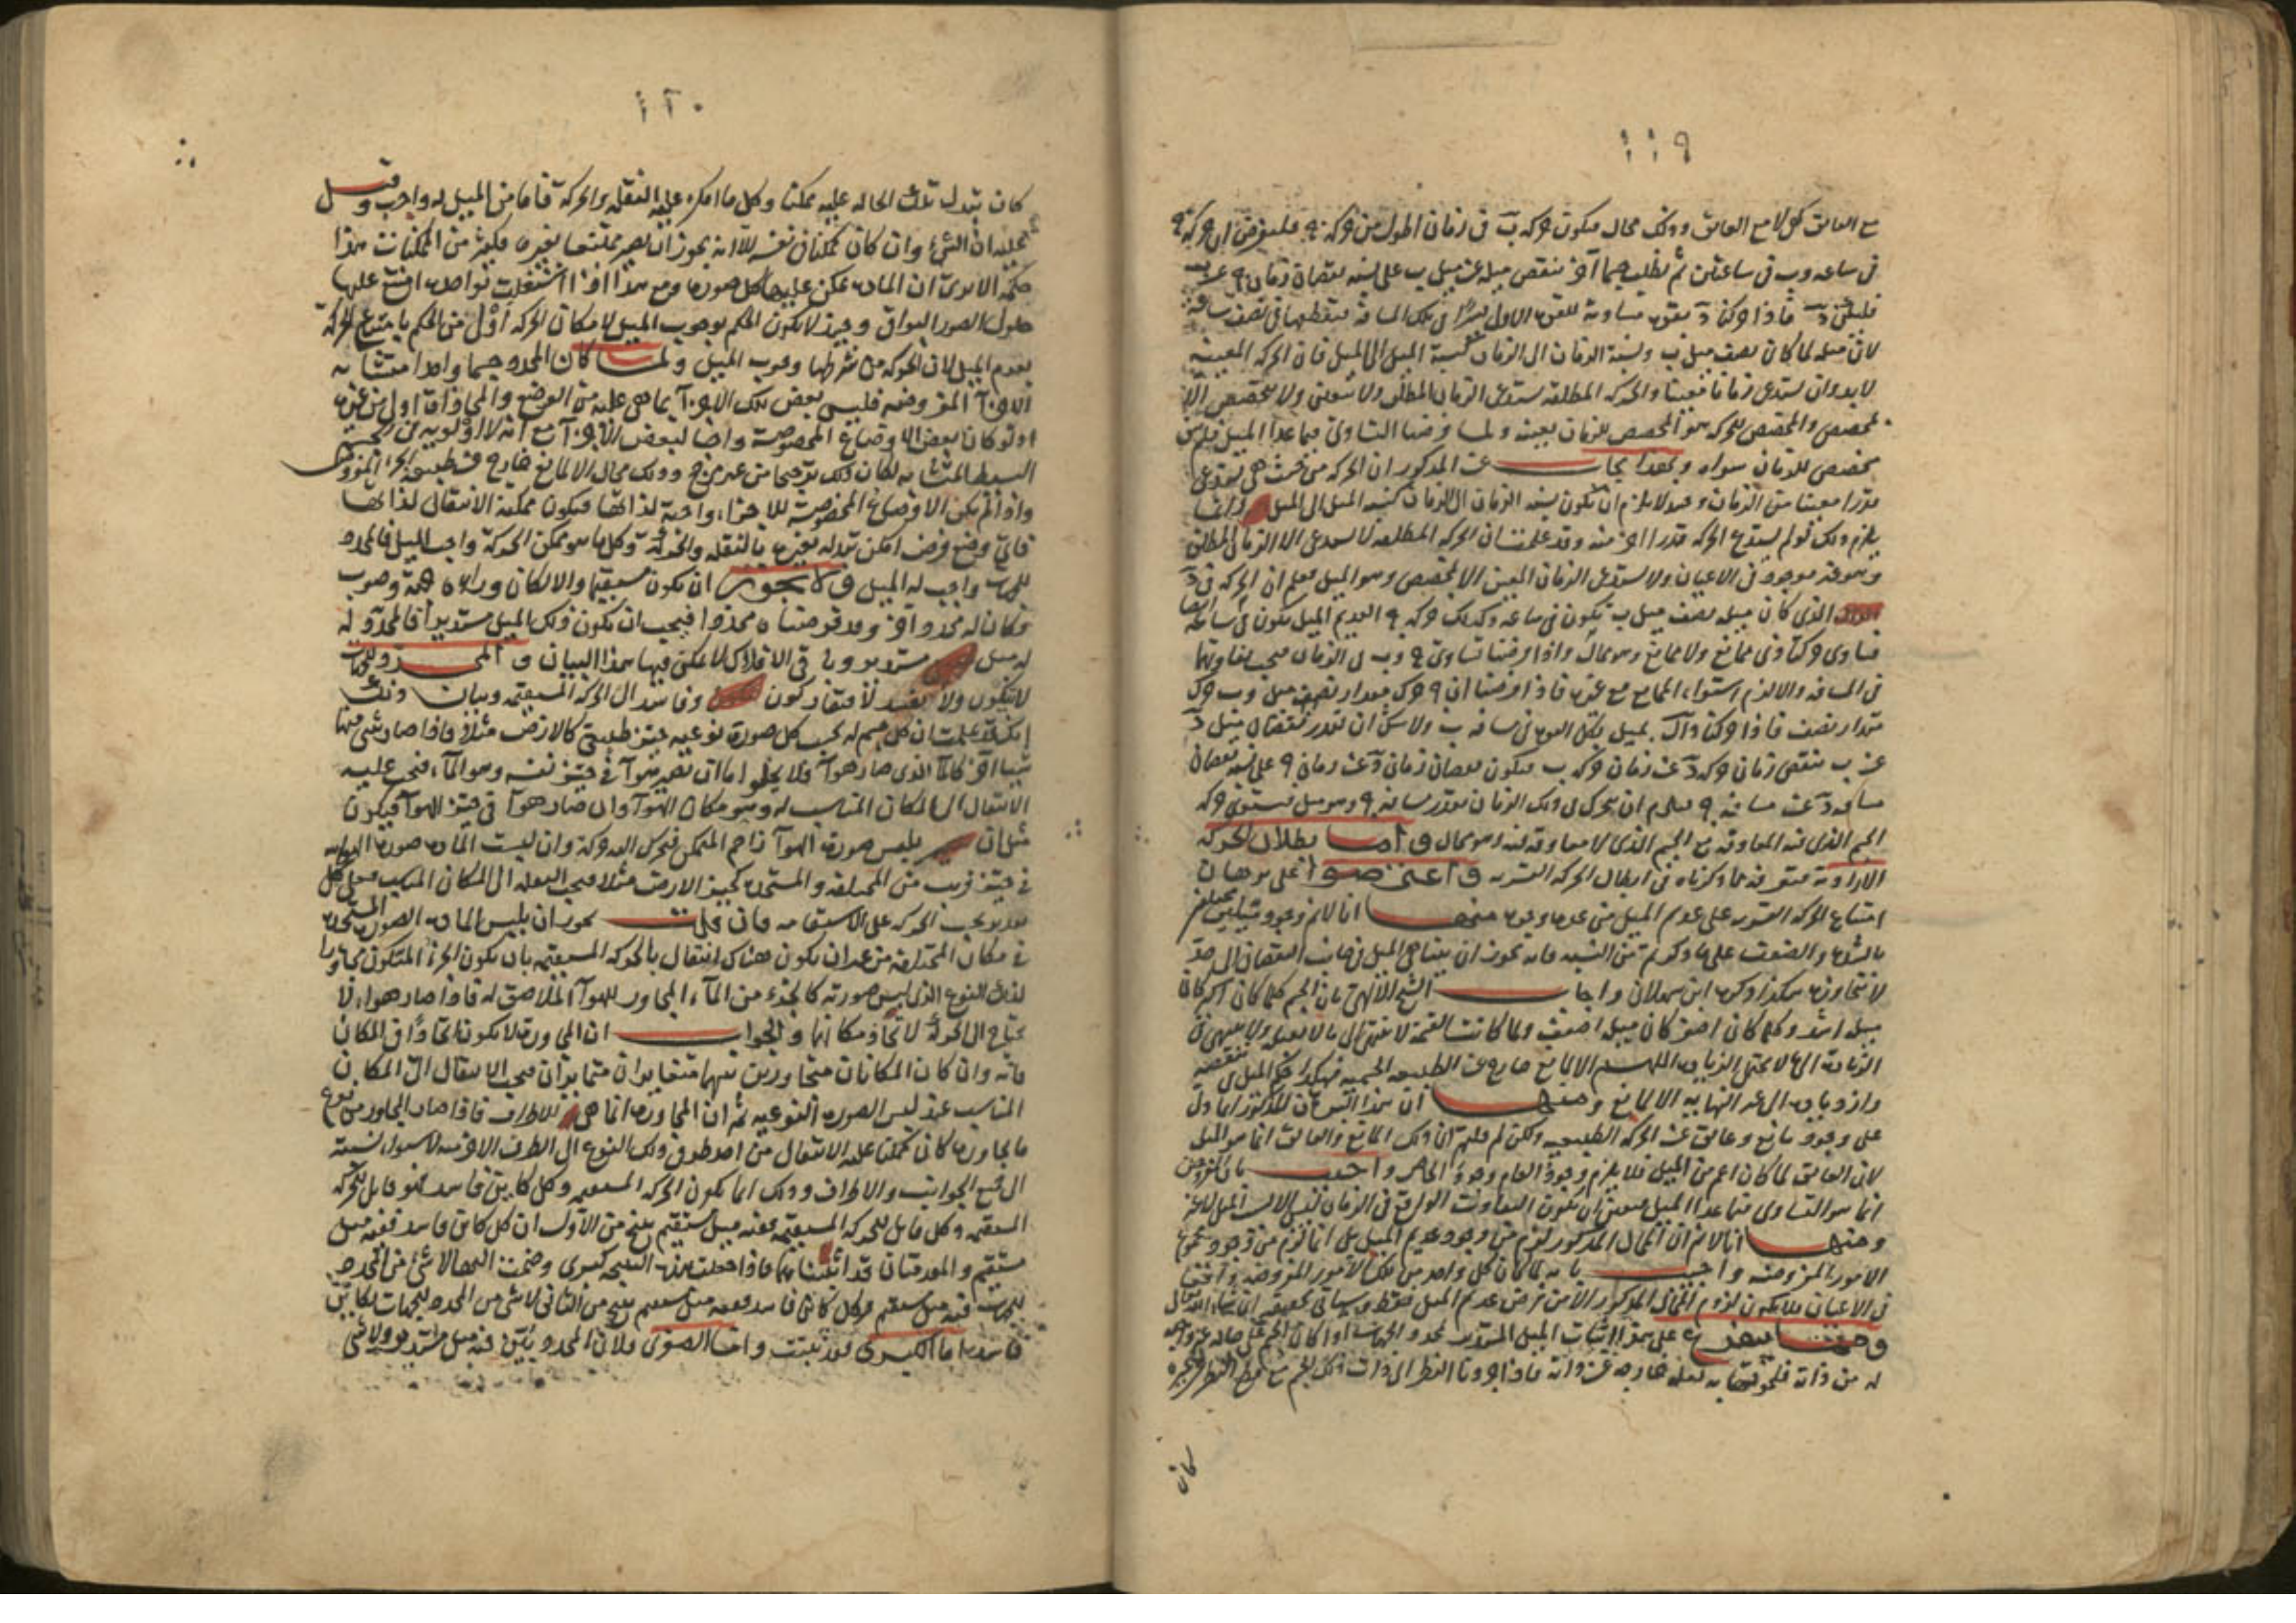 ١١٩
مع العائق كهي لا مع العائق وذلك محال فيكون حركة ب في زمان اطول من حركة فليفرض ان حركة
في ساعة وب في ساعتين ثم نطلب جسما آخر ينقص ميله عن ميل ب على نسبة نقصان زمان عن
فاذا حركنا د بقوة مساوية للقوة الاولى في تلك المسافة فيقطعها في نصف ساعة
لان ميله لما كان نصف ميل ب ونسبة الزمان الى الزمان كنسبة الميل الى الميل فان الحركة المعينة
لا بد وان تستدعي زمانا معينا والحركة المطلقة تستدعي الزمان المطلق ولا يتعين ولا يتخصص الا
لمخصص والمخصص للحركة هو المخصص للزمان بعينه ولما فرضنا التساوي فيما عدا الميل فليس
مخصص للزمان سواه وبهذا يجاب عن المذكور ان الحركة من حيث هي تستدعي
قدرا معينا من الزمان وحينئذ لا يلزم ان يكون نسبة الزمان الى الزمان كنسبة الميل الى الميل وانما
يلزم ذلك لو لم يستدع الحركة قدرا آخر منه وقد علمت ان الحركة المطلقة لا تستدعي الا الزمان المطلق
وهو غير موجود في الاعيان ولا تستدعي الزمان المعين الا لمخصص وهو الميل فعلم ان الحركة في د
الذي كان ميله نصف ميل ب يكون في ساعة وكذلك حركة العديم الميل يكون في ساعة ايضا
فتساوى حركتا ذي ممانع ولا ممانع وهو محال واذا فرضنا تساوي وب في الزمان فيجب تفاوتهما
في المسافة والا لزم استواء الممانع مع غيره فاذا فرضنا ان حرك مقدار نصف ميل وب حرك
مقدار نصف فاذا حركنا د بميل بتلك القوة في مسافة ب ولا شك ان بقدر نقصان ميل د
عن ب ينقص زمان حركة د عن زمان حركة ب فيكون نقصان زمان د عن زمان على نسبة نقصان
مسافة د عن مسافة فيلزم ان يتحرك في ذلك الزمان بقدر مسافة وهو ميل فيستوي حركة
الجسم الذي فيه المعاوقة مع الجسم الذي لا معاوقة فيه وهو محال واما بطلان الحركة
الارادية فيتعرف مما ذكرناه في ابطال الحركة القسرية واعترضوا على برهان
امتناع الحركة القسرية على عديم الميل من عدة وجوه منها انا لا نم وجود ميلين مختلفين
بالشدة والضعف على ما ذكرتم من النسبة فانه يجوز ان يتناهى الميل في جانب النقصان الى حد
لا يتجاوزه هكذا ذكره ابن سهلان واجاب الشيخ الالهي بان الجسم كلما كان اكبر كان
ميله اشد وكلما كان اصغر كان ميله اضعف ولما كانت القسمة لا تنتهي الى ما لا يقبله ولا ينتهي في
الزيادة الى ما لا يحتمل الزيادة اللهم الا لمانع خارج عن الطبيعة الجسمية فهكذا حكم الميل في تنقصه
وازدياده الى غير النهاية الا لمانع ومنها ان هذا البرهان المذكور انما دل
على وجود مانع وعائق عن الحركة الطبيعية ولكن لم قلتم ان ذلك المانع والعائق انما هو الميل
لان العائق لما كان اعم من الميل فلا يلزم وجود العام وجود الخاص واجيب بان المفروض
انما هو التساوي فيما عدا الميل فتعين ان يكون التفاوت الواقع في الزمان ليس الا للميل لا غير
ومنها انا لا نم ان المحال المذكور لزم من وجود عديم الميل بل انما لزم من وجود مجموع
الامور المفروضة واجيب بانه لما كان كل واحد من تلك الامور المفروضة واقعا
في الاعيان فلا يكون لزوم المحال المذكور الا من فرض عديم الميل فقط وسيأتي تحقيقه ان شاء الله تعالى
وحينئذ يتفرع على هذا اثبات الميل المستدير لمحدد الجهات اذا كان الجسم على حالة غير واجبة
له من ذاته فلحوقها به لعلة خارجة عن ذاته فاذا جردنا النظر الى ذات ذلك الجسم مع قطع النظر عن غيره
كان
١٢٠
كان تبدل تلك الحالة عليه ممكنا وكل ما امكن عليه النقلة والحركة فاما من الميل له واجب وقيل
عليه ان الشيء وان كان ممكنا في نفسه الا انه يجوز ان يصير ممتنعا بغيره فكثير من الممكنات هذا
حكمه الا ترى ان المادة ممكن عليها كل صورة ومع هذا اذا اشتغلت بواحدة امتنع عليها
حلول الصور البواقي وحينئذ لا يكون الحكم بوجوب الميل لامكان الحركة اولى من الحكم بامتناع الحركة
بعدم الميل لان الحركة من شرطها وجوب الميل ولما كان المحدد جسما واحدا متشابه
الاجزاء المفروضة فليس بعض تلك الاجزاء بما هي عليه من الوضع والمحاذاة اولى من غيره
اذ لو كان بعض الاوضاع المخصوصة واجبا لبعض الاجزاء مع انه لا اولوية في الجسم
البسيط المتشابه لكان ذلك ترجيحا من غير مرجح وذلك محال الا لمانع خارج عن طبيعة الجزء المفروض
واذا لم يكن الاوضاع المخصوصة للاجزاء واجبة لذاتها فيكون ممكنة الانتقال لذاتها
فاي وضع فرض امكن تبدله بغيره بالنقلة والحركة وكل ما هو ممكن الحركة واجب الميل فالمحدد
للجهات واجب له الميل ولا يجوز ان يكون مستقيما والا لكان وراءه جهة وصوب
فكان له محدد آخر وقد فرضناه محددا فيجب ان يكون ذلك الميل مستديرا فالمحدد له
له ميل مستدير وباقي الافلاك لا يمكن فيها هذا البيان والمحدد للجهات
لا يتكون ولا يفسد لافتقار كون وفاسد الى الحركة المستقيمة وبيان ذلك
انك قد علمت ان كل جسم له بحسب كل صورة نوعية حيز طبيعي كالارض مثلا فاذا صار شيء منها
شيئا آخر كالماء الذي صار هواء فلا يخلو اما ان يصير هواء في حيز نفسه وهو الماء فيجب عليه
الانتقال الى المكان المناسب له وهو مكان الهواء وان صار هواء في حيز الهواء فيكون
قبل ان يلبس صورة الهواء زاحم المتمكن فتحرك اليه حركة وان لبست المادة صورة الهوائية
في حيز قريب من المختلفة والمستجدة كحيز الارض مثلا فيجب النقلة الى المكان المناسب فعلى كل
تقدير يجب الحركة على الاستقامة فان قلت يجوز ان يلبس المادة الصورة المستجدة
في مكان المختلفة من غير ان يكون هناك انتقال بالحركة المستقيمة بان يكون الجزء المتكون مجاورا
لذلك النوع الذي لبس صورته كالجزء من الماء المجاور للهواء الملاصق له فاذا صار هواء لا
يحتاج الى الحركة لاتحاد مكانهما والجواب ان المجاورة لا يكون اتحادا في المكان
فانه وان كان المكانان متجاورين فهما متغايران متمايزان فيجب الانتقال الى المكان
المناسب عند لبس الصورة النوعية ثم ان المجاورة انما هي للاطراف فاذا صار المجاور من نوع
ما يجاوره كان ممكنا عليه الانتقال من احد طرفي ذلك النوع الى الطرف الآخر لاستواء نسبته
الى جميع الجوانب والاطراف وذلك انما يكون بالحركة المستقيمة وكل كائن فاسد فهو قابل للحركة
المستقيمة وكل قابل للحركة المستقيمة ففيه ميل مستقيم ينتج من الاول ان كل كائن فاسد ففيه ميل
مستقيم والمقدمتان قد اثبتناهما فاذا جعلت هذه النتيجة كبرى وضمت اليها لا شيء من المحدد
للجهات فيه ميل مستقيم وكل كائن فاسد ففيه ميل مستقيم ينتج من الثاني لا شيء من المحدد للجهات بكائن
فاسد اما الكبرى فقد ثبتت واما الصغرى فلان المحدد فيه ميل مستدير ولا شيء